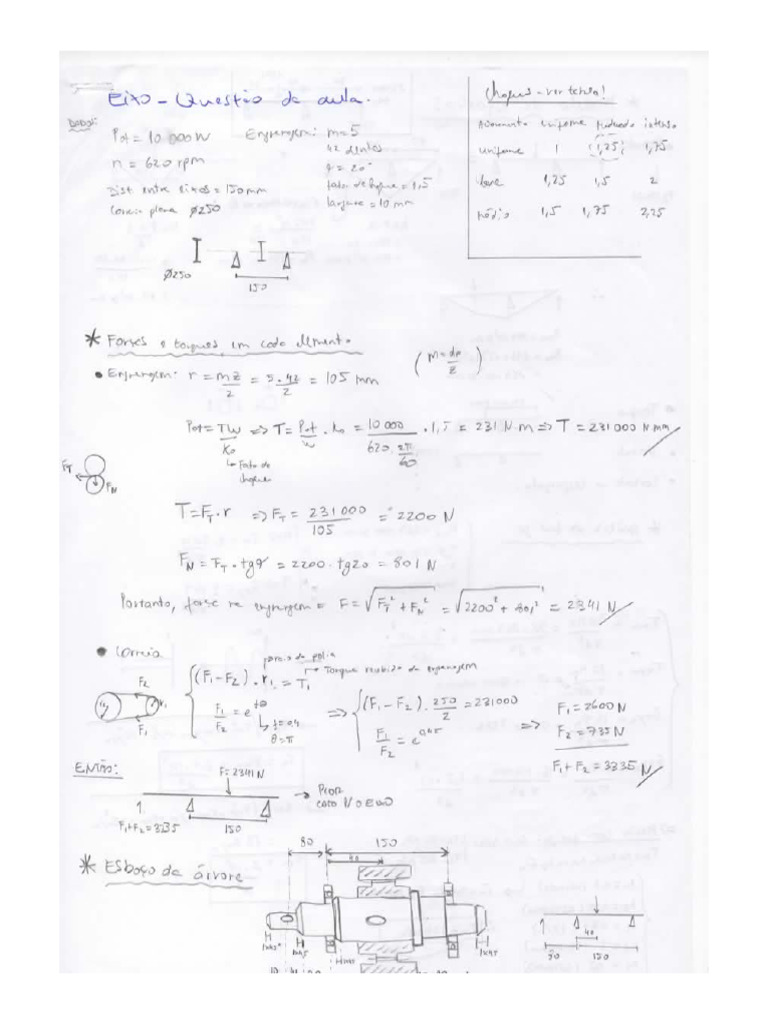 Eixo - Questão da aula.
Dados:
Pot = 10 000 W
n = 620 rpm
Dist entre eixos = 150 mm
Correia plana Ø250
Engrenagem: m=5
42 dentes
φ = 20°
fator de choque = 1,5
largura = 10 mm
Choques - ver tabela!
Acionamento uniforme moderado intenso
uniforme 1 1,25 1,75
leve 1,25 1,5 2
médio 1,5 1,75 2,25
Ø250
150
* Forças e torques em cada elemento
(m = dp/z)
• Engrenagem: r = mz/2 = 5.42/2 = 105 mm
Pot = TW/Ko => T = Pot/w . Ko = 10 000/(620 . 2π/60) . 1,5 = 231 N.m => T = 231 000 N.mm
Fator de choque
FT
FN
T = FT . r => FT = 231 000/105 = 2200 N
FN = FT . tgφ = 2200 . tg20 = 801 N
Portanto, força na engrenagem = F = √(FT² + FN²) = √(2200² + 801²) = 2341 N
• Correia
F2
r1
F1
raio da polia
Torque recebido da engrenagem
(F1 - F2) . r1 = T1
F1/F2 = e^fθ
f = 0,4
θ = π
=> (F1 - F2) . 250/2 = 231000
F1/F2 = e^0,4π
=> F1 = 2600 N
F2 = 735 N
F1 + F2 = 3335 N
Então:
F = 2341 N
PIOR
CASO
F1+F2 = 3335
150
* Esboço da árvore
80
150
40
1x45°
1x45
1x45
1x45
40
150